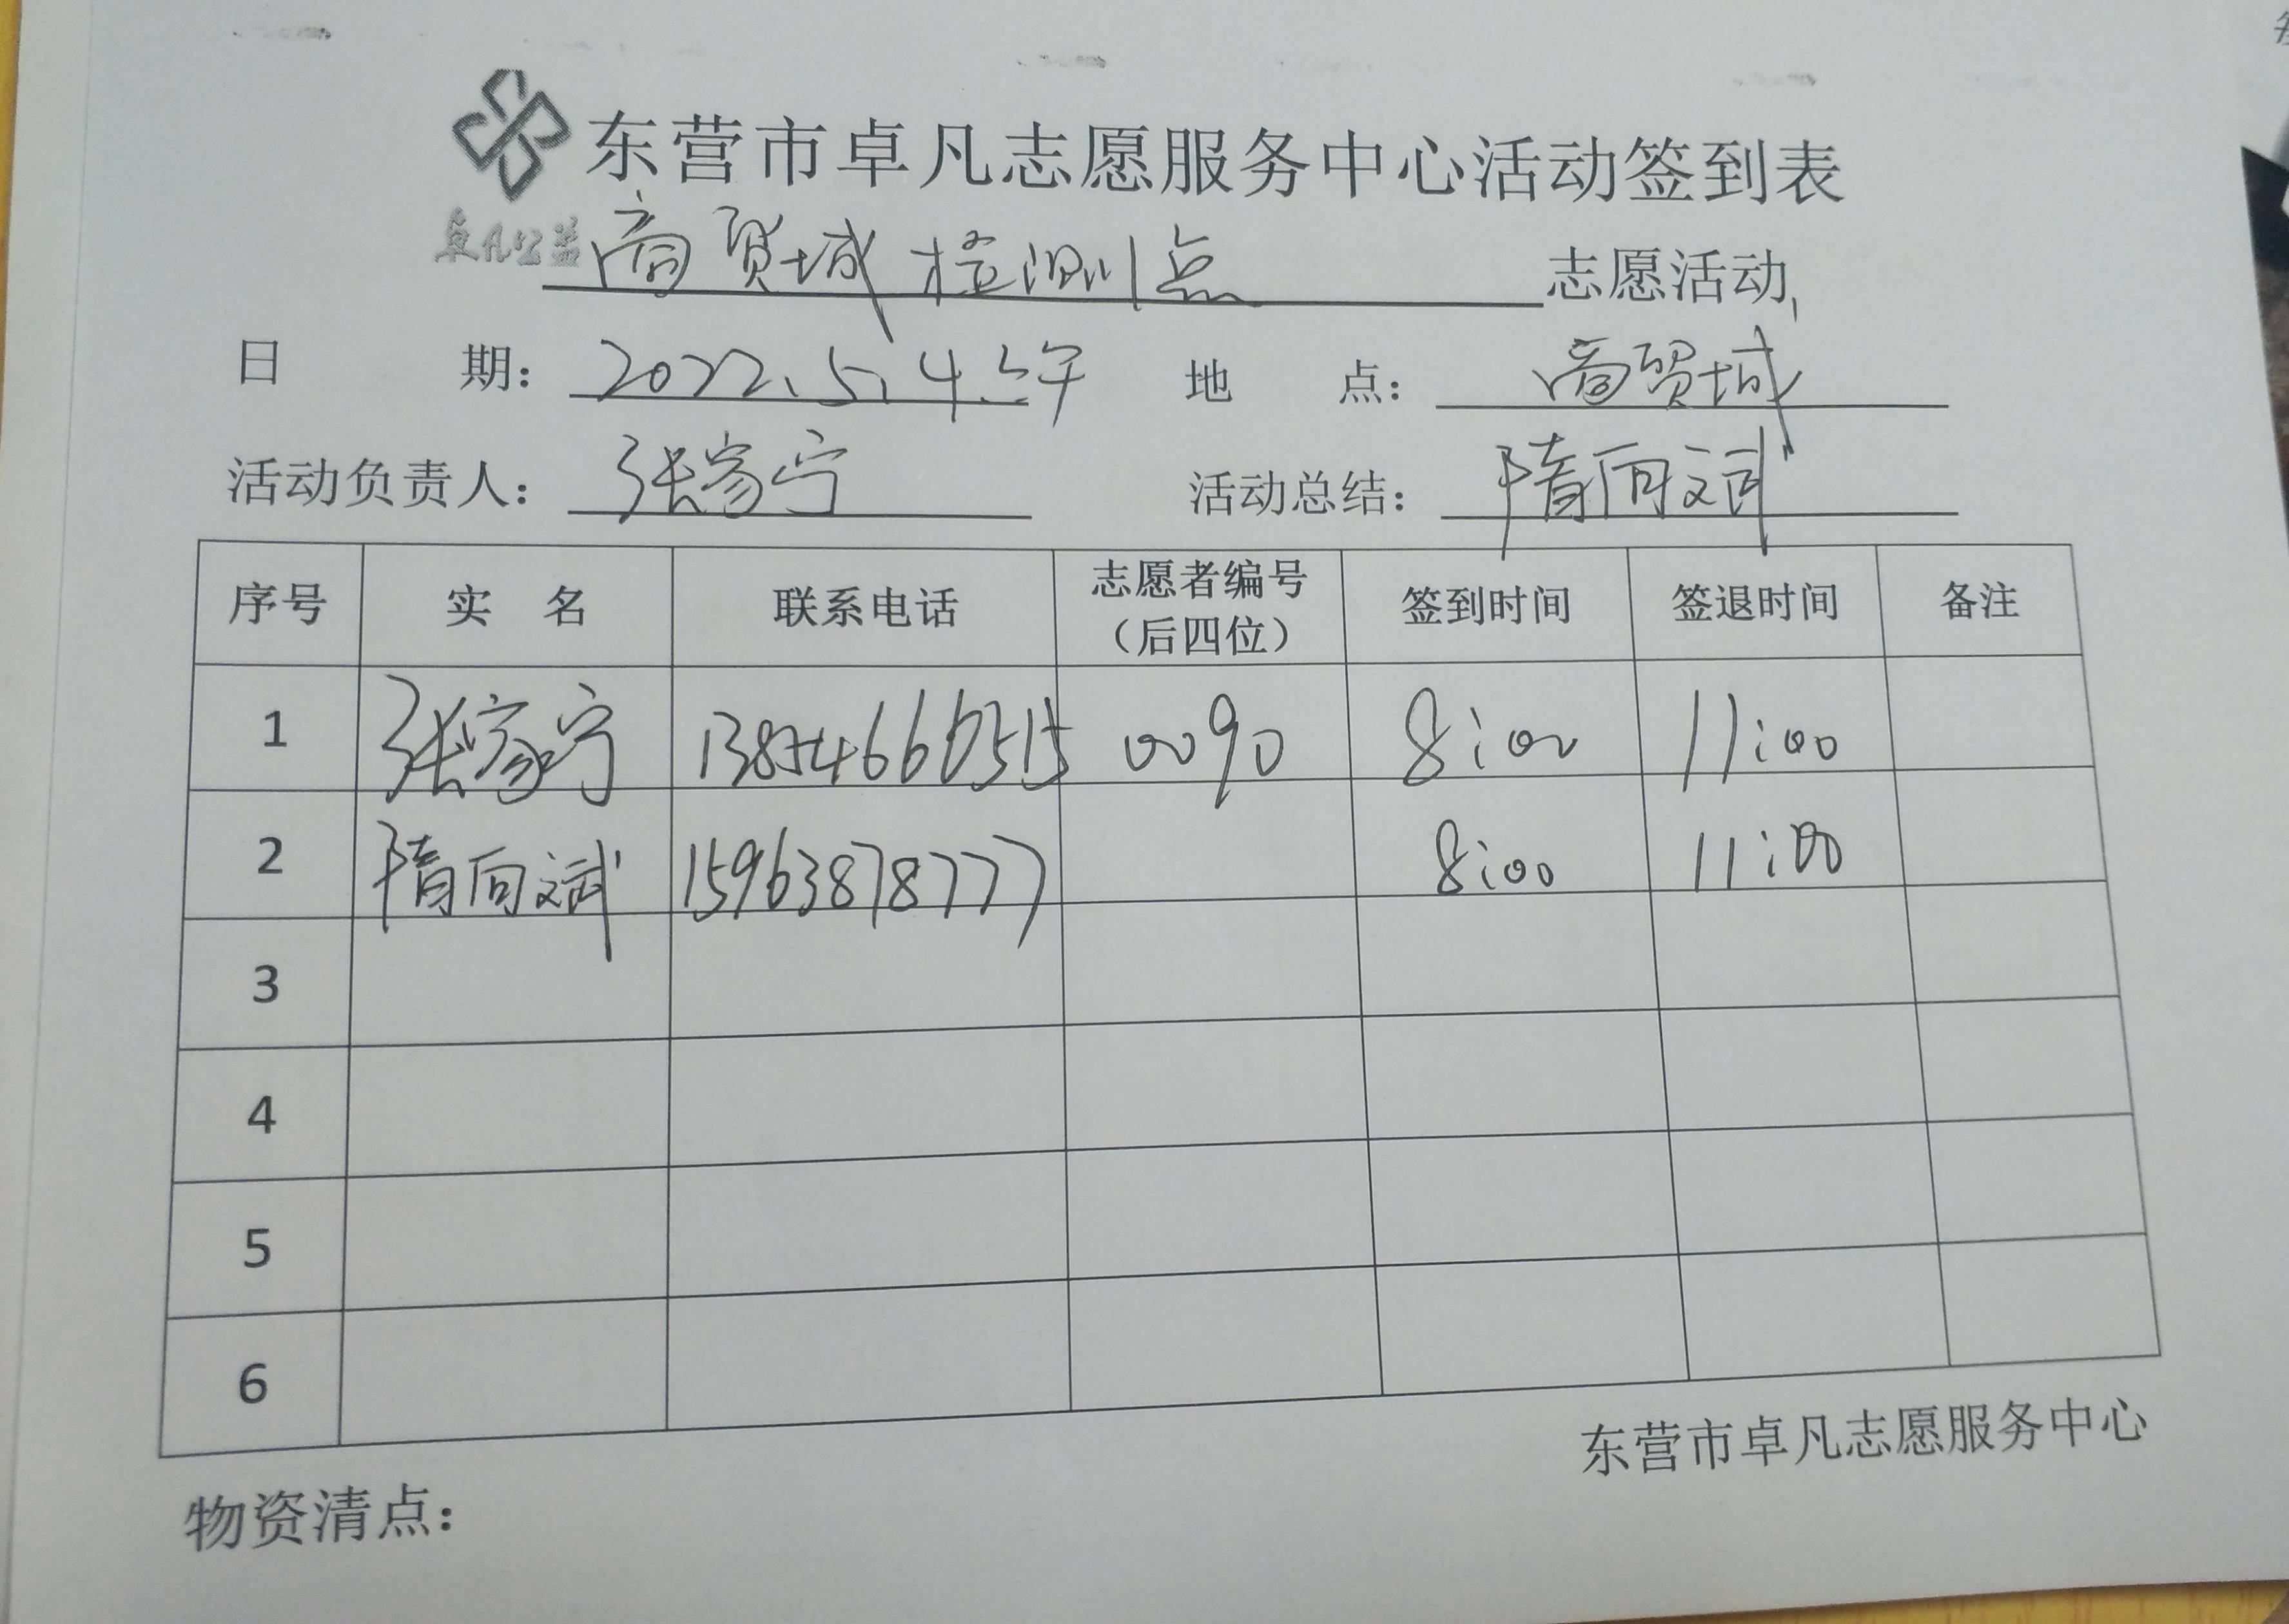 东营市卓凡志愿服务中心活动签到表
卓凡公益 商贸城检测点 志愿活动
日期: 2022.5.4上午 地点: 商贸城
活动负责人: 张家宁 活动总结: 隋向斌
序号 实名 联系电话 志愿者编号(后四位) 签到时间 签退时间 备注
1 张家宁 13854666515 0090 8:00 11:00
2 隋向斌 15963878777 8:00 11:00
3
4
5
6
东营市卓凡志愿服务中心
物资清点: